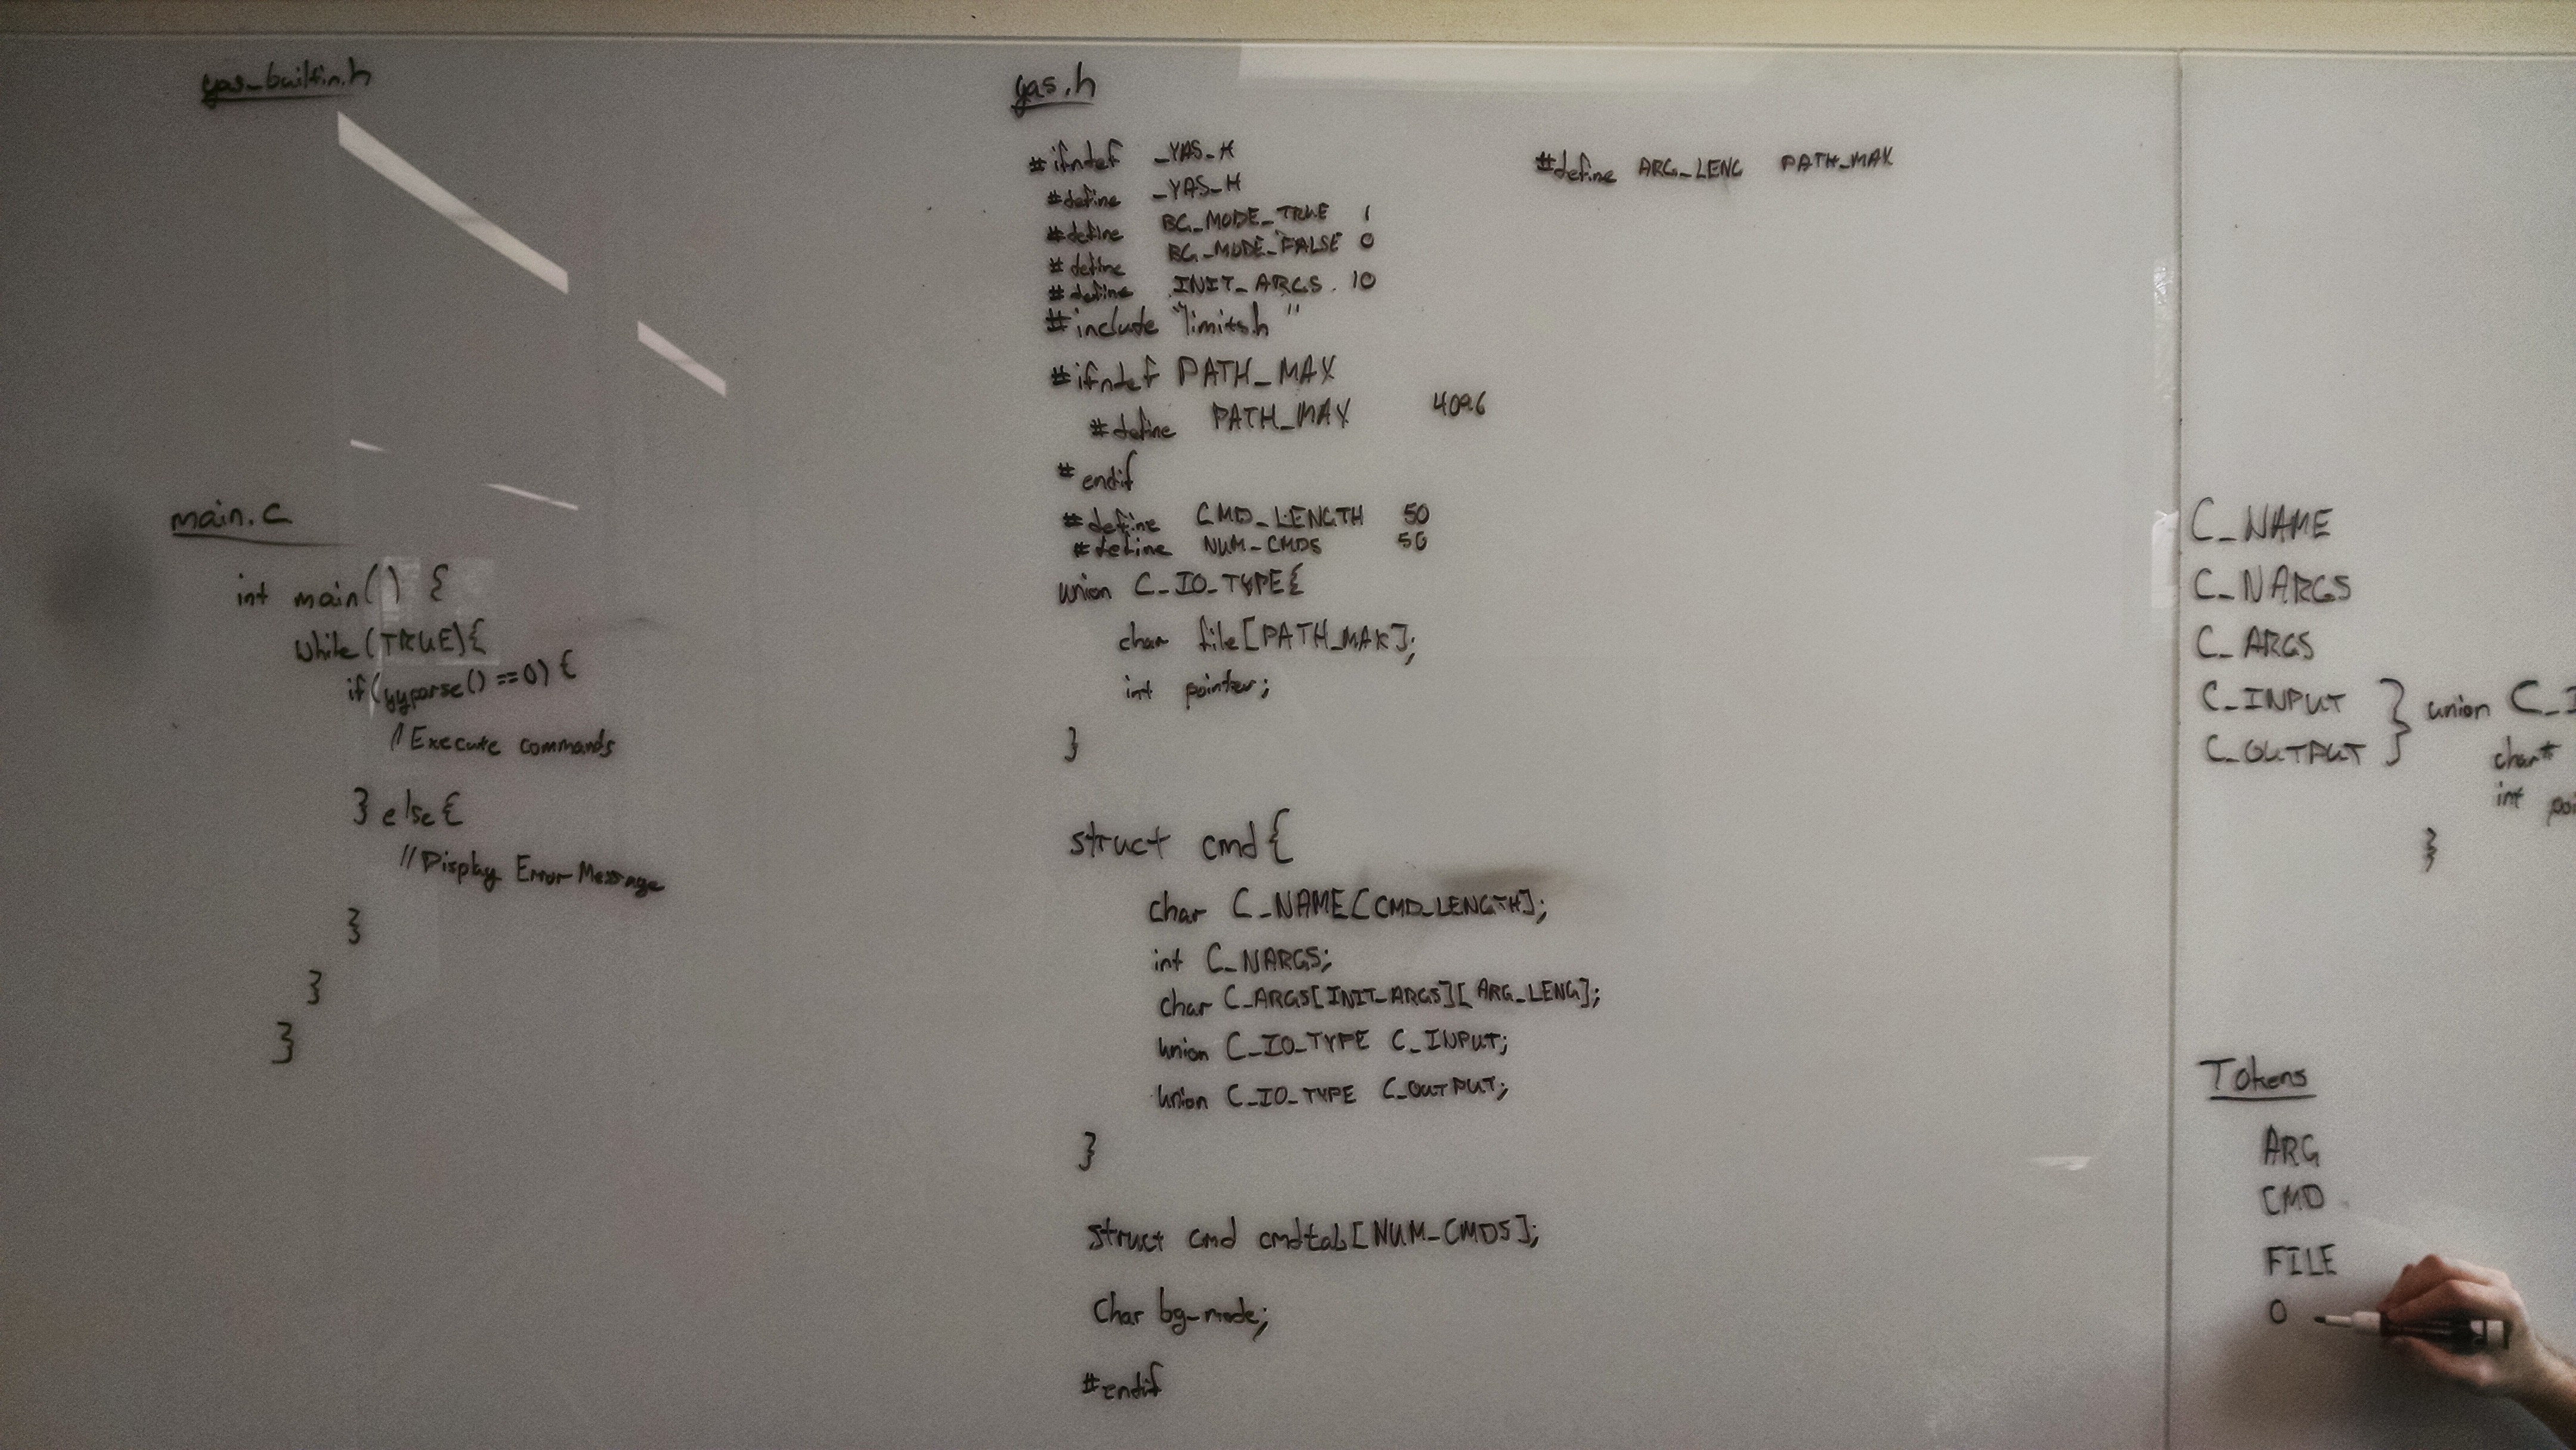 yas_builtin.h
main.c
int main() {
while(TRUE){
if(yyparse() ==0) {
// Execute commands
} else {
// Display Error Message
}
}
}
yas.h
#ifndef _YAS_H
#define _YAS_H
#define BG_MODE_TRUE 1
#define BG_MODE_FALSE 0
#define INIT_ARGS 10
#include "limits.h"
#ifndef PATH_MAX
#define PATH_MAX 4096
#endif
#define CMD_LENGTH 50
#define NUM_CMDS 50
union C_IO_TYPE{
char file[PATH_MAX];
int pointer;
}
struct cmd {
char C_NAME[CMD_LENGTH];
int C_NARGS;
char C_ARGS[INIT_ARGS][ARG_LENG];
union C_IO_TYPE C_INPUT;
union C_IO_TYPE C_OUTPUT;
}
struct cmd cmdtab[NUM_CMDS];
Char bg_mode;
#endif
#define ARG_LENG PATH_MAX
C_NAME
C_NARGS
C_ARGS
C_INPUT } union C_I
C_OUTPUT
char*
int poi
}
Tokens
ARG
CMD
FILE
O